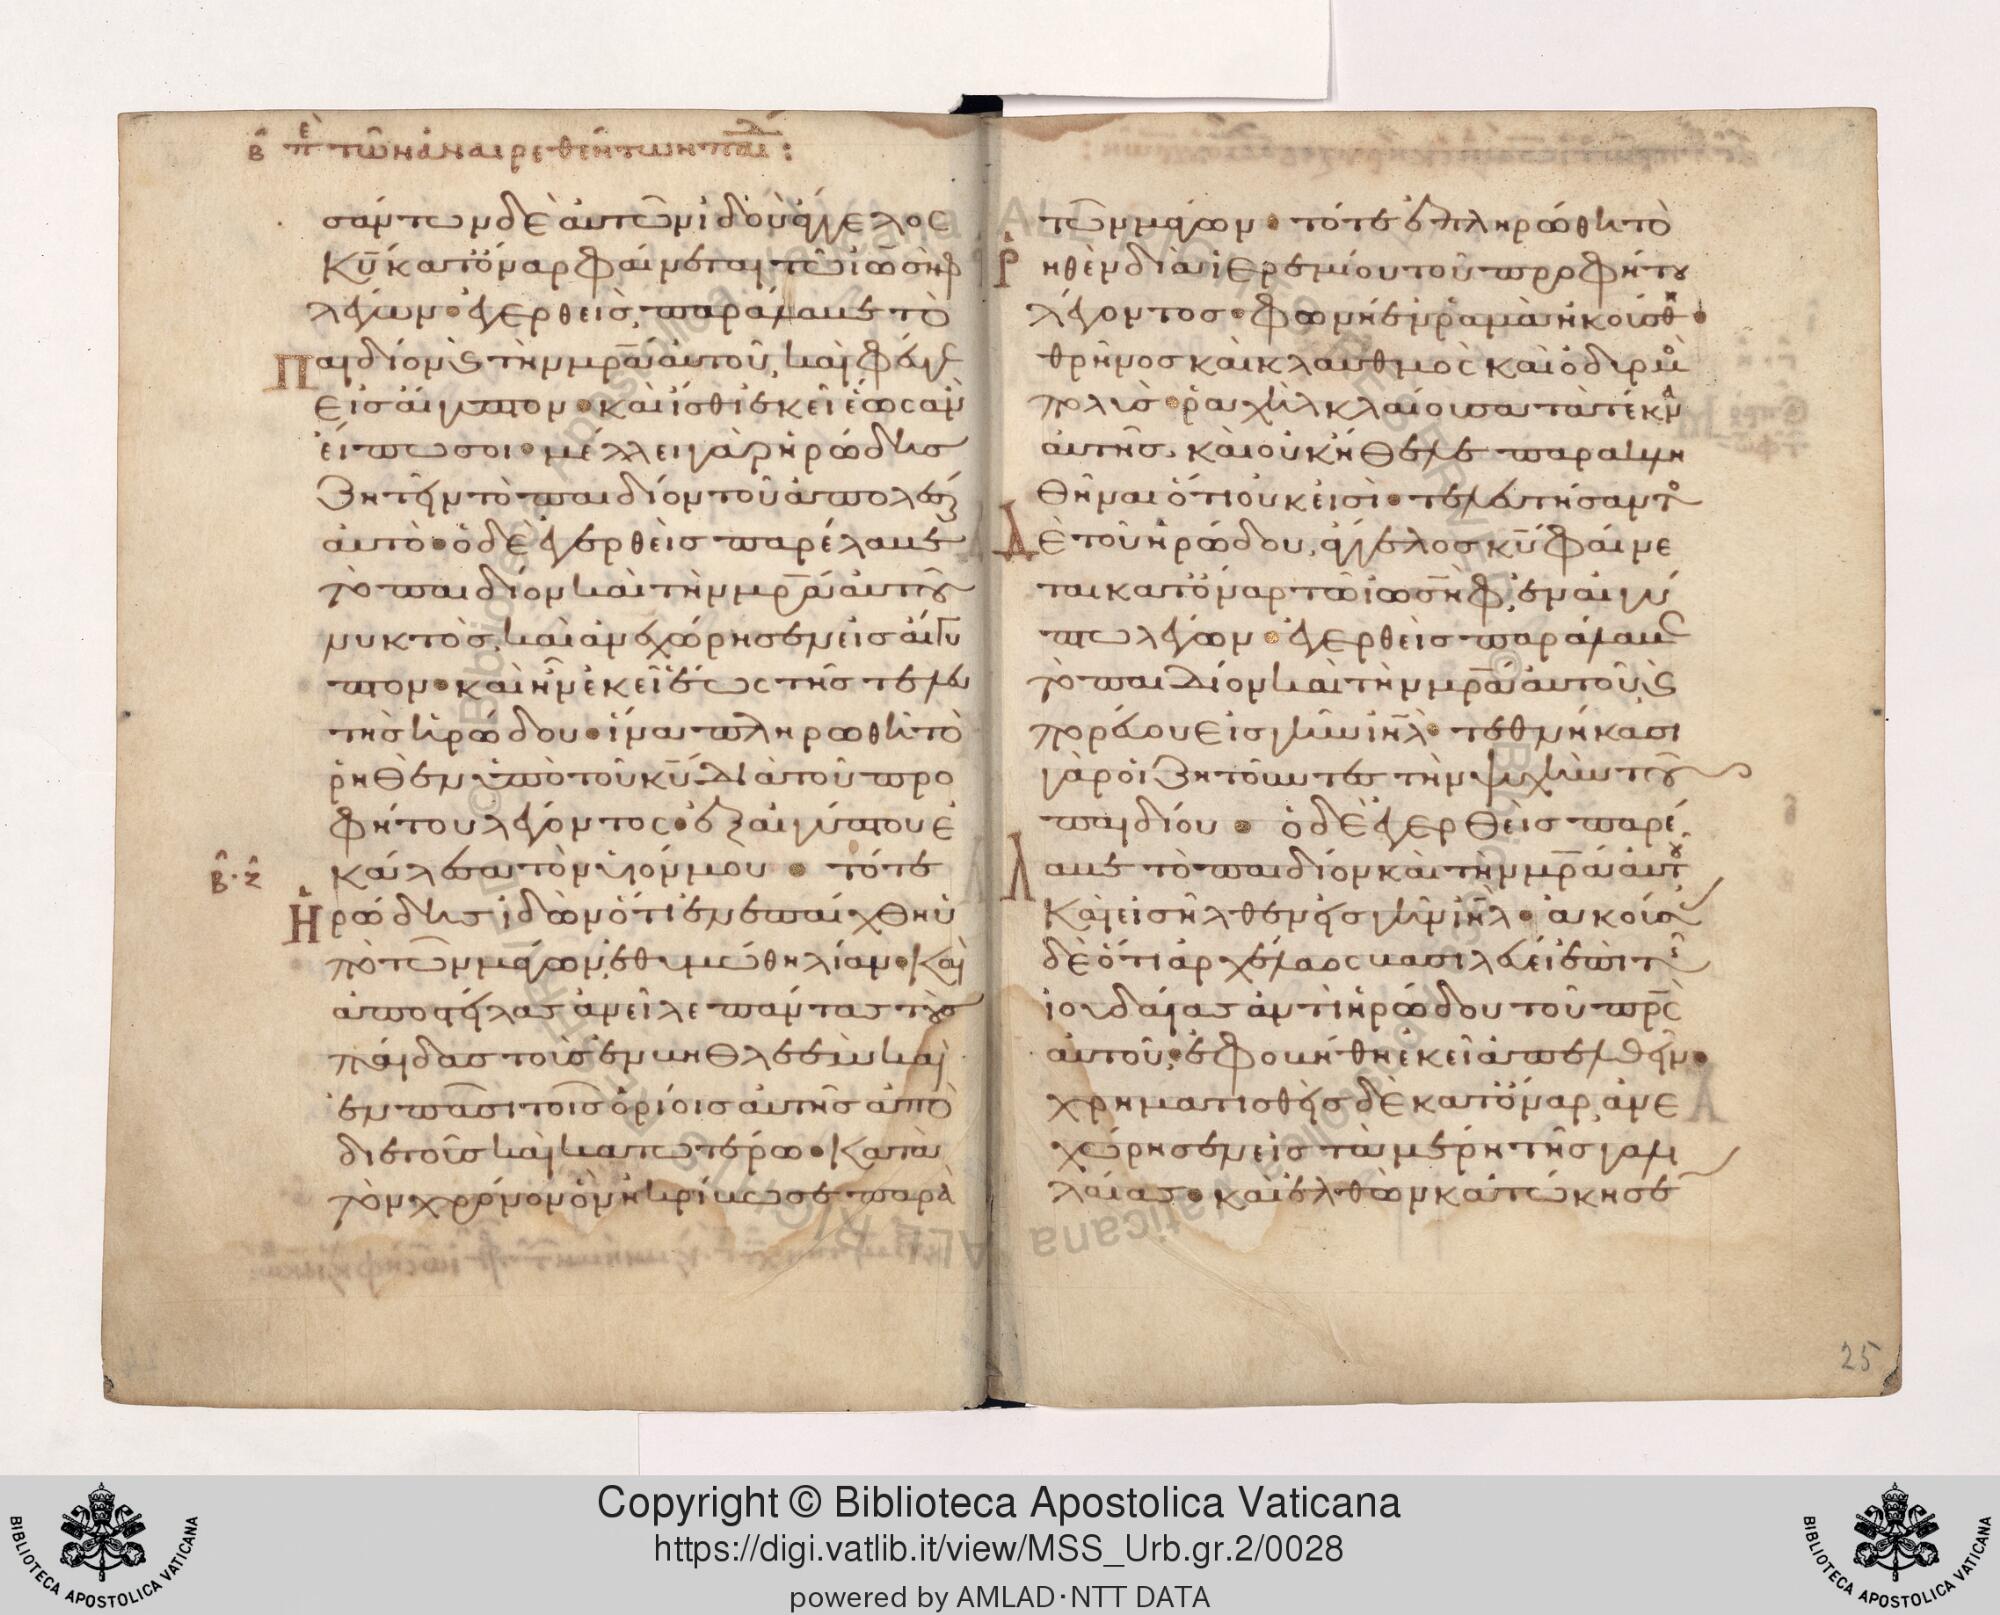 β̂ πὲ τῶν ἀναιρεθέντων παί :
σάντων δὲ ἀυτῶν ἰδοὺ ἄγγελος
κ̅υ̅ κατ ὄναρ φαίνεται τῶ ἰωσὴφ
λέγων · ἐγερθεὶς, παράλαβε τὸ
Παιδίον ϗ τὴν μ̅ρ̅α̅ ἀυτοῦ, καὶ φεῦγε
εἰς ἄιγυπτον · καὶ ἴσθι ἐκεῖ ἕως ἂν
ἔιπω σοι · μέλλει γὰρ ἡρώδης
ζητεῖν τὸ παιδίον τοῦ ἀπολέσαι
ἀυτὸ · ὁ δὲ ἐγερθεὶς παρέλαβε
τὸ παιδίον καὶ τὴν μ̅ρ̅α̅ ἀυτοῦ
νυκτὸς, καὶ ἀνεχώρησεν εἰς ἄιγυ
πτον · καὶ ἦν ἐκεῖ ἕως τῆς τελευ
τῆς ἡρώδου · ἵνα πληρωθῆ τὸ
ῥηθὲν ὑπὸ τοῦ κ̅υ̅ διὰ τοῦ προ
φήτου λέγοντος · ἐξ αἰγύπτου ἐ
κάλεσα τὸν υἱόν μου · τότε
β̂ · ζ̂
Ἡρώδης ἰδὼν ὅτι ἐνεπαίχθη ὑ
πὸ τῶν μάγων, ἐθυμώθη λίαν · καὶ
ἀποστείλας ἀνεῖλε πάντας τοὺς
παῖδας τοὺς ἐν βηθλεὲμ καὶ
ἐν πᾶσι τοῖς ὁρίοις ἀυτῆς ἀπὸ
διετοῦς καὶ κατωτέρω · κατὰ
τὸν χρόνον ὃν ἠκρίβωσε παρὰ
τῶν μάγων · τότε ἐπληρώθη τὸ
Ῥηθὲν διὰ ἱερεμίου τοῦ προφήτου
λέγοντος · φωνὴ ἐν ῥαμὰ ἠκούσθη ·
θρῆνος καὶ κλαυθμὸς καὶ ὀδυρμὸ
πολὺς · ῥαχὴλ κλαίουσα τὰ τέκνα
ἀυτῆς, καὶ οὐκ ἤθελε παρακλη
θῆναι ὅτι οὐκ εἰσὶ · τελευτήσαντο
Δὲ τοῦ ἡρώδου, ἄγγελος κ̅υ̅ φαίνε
ται κατ ὄναρ τῶ ἰωσὴφ, ἐν αἰγύ
πτω λέγων · ἐγερθεὶς παράλαβε
τὸ παιδίον καὶ τὴν μ̅ρ̅α̅ ἀυτοῦ, ϗ
πορεύου εἰς γῆν ι̅η̅λ̅ · τεθνήκασι
γὰρ οἱ ζητοῦντες τὴν ψυχὴν τοῦ
παιδίου · ὁ δὲ ἐγερθεὶς παρέ
Λαβε τὸ παιδίον καὶ τὴν μ̅ρ̅α̅ ἀυτοῦ
καὶ εἰσῆλθεν εἰς γῆν ι̅η̅λ̅ · ἀκούσας
δὲ ὅτι ἀρχέλαος βασιλεύει ἐπὶ τῆς
ἰουδαίας ἀντὶ ἡρώδου τοῦ π̅ρ̅ς̅
ἀυτοῦ, ἐφοβήθη ἐκεῖ ἀπελθεῖν ·
χρηματισθεὶς δὲ κατ ὄναρ, ἀνε
χώρησεν εἰς τὰ μέρη τῆς γαλι
λαίας · καὶ ἐλθὼν κατώκησε
25
Copyright © Biblioteca Apostolica Vaticana
https://digi.vatlib.it/view/MSS_Urb.gr.2/0028
powered by AMLAD·NTT DATA
BIBLIOTECA APOSTOLICA VATICANA
BIBLIOTECA APOSTOLICA VATICANA